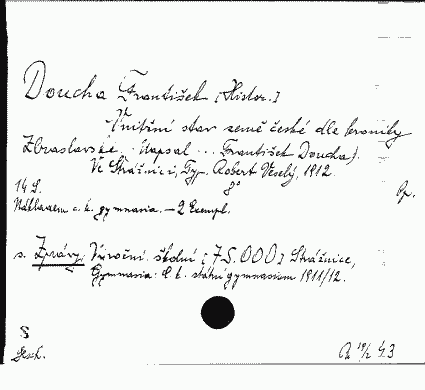 Doucha František [Histor.]
Vnitřní stav země české dle kroniky
Zbraslavské. Napsal ... František Doucha).
Ve Strážnici, Typ. Robert Veselý, 1912.
8°
14 S.
Nákladem c. k. gymnasia. — 2 Exempl.
s. Zprávy, Výroční školní [75.000] Strážnice,
Gymnasia: C. k. státní gymnasium 1911/12.
S
Gesch.
43